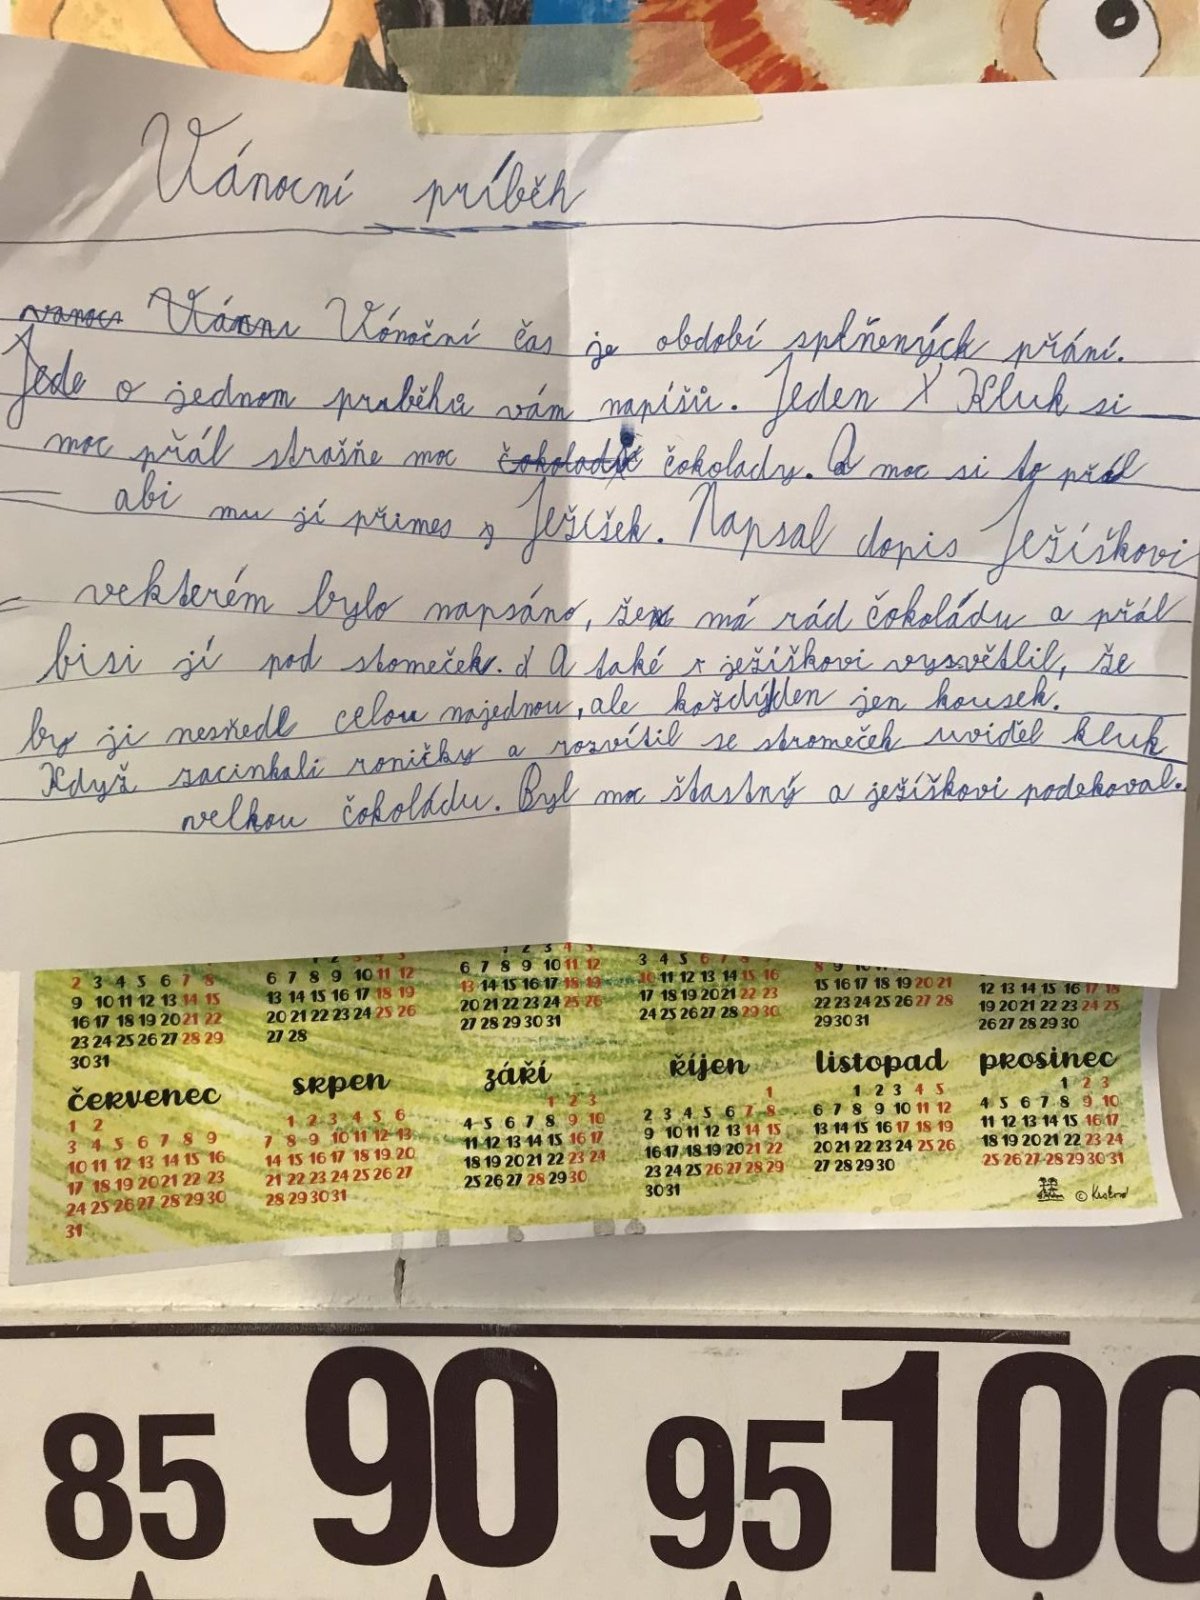 Vánocní príběh
Vánoční čas je období splňených přání.
o jednom pruběhů vám napíšů. Jeden Kluk si
moc přál strašňe moc čokolady. A moc si to přál
abi mu jí přimes Ježíšek. Napsal dopis Ježíškovi
vekterém bylo napsáno, že má rád čokoládu a přál
bisi jí pod stomeček. A také ježíškovi vysvětlil, že
by ji nesňedl celou najednou, ale koždýden jen kousek.
Když zacinkali roničky a rozvítil se stromeček uviděl kluk
velkou čokoládu. Byl moc štastný a ježíškovi podekoval.
2 3 4 5 6 7 8
9 10 11 12 13 14 15
16 17 18 19 20 21 22
23 24 25 26 27 28 29
30 31
6 7 8 9 10 11 12
13 14 15 16 17 18 19
20 21 22 23 24 25 26
27 28
6 7 8 9 10 11 12
13 14 15 16 17 18 19
20 21 22 23 24 25 26
27 28 29 30 31
3 4 5 6 7 8 9
10 11 12 13 14 15 16
17 18 19 20 21 22 23
24 25 26 27 28 29 30
15 16 17 18 19 20 21
22 23 24 25 26 27 28
29 30 31
12 13 14 15 16 17 18
19 20 21 22 23 24 25
26 27 28 29 30
červenec
1 2
3 4 5 6 7 8 9
10 11 12 13 14 15 16
17 18 19 20 21 22 23
24 25 26 27 28 29 30
31
srpen
1 2 3 4 5 6
7 8 9 10 11 12 13
14 15 16 17 18 19 20
21 22 23 24 25 26 27
28 29 30 31
září
1 2 3
4 5 6 7 8 9 10
11 12 13 14 15 16 17
18 19 20 21 22 23 24
25 26 27 28 29 30
říjen
1
2 3 4 5 6 7 8
9 10 11 12 13 14 15
16 17 18 19 20 21 22
23 24 25 26 27 28 29
30 31
listopad
1 2 3 4 5
6 7 8 9 10 11 12
13 14 15 16 17 18 19
20 21 22 23 24 25 26
27 28 29 30
prosinec
1 2 3
4 5 6 7 8 9 10
11 12 13 14 15 16 17
18 19 20 21 22 23 24
25 26 27 28 29 30 31
©
85 90 95 100